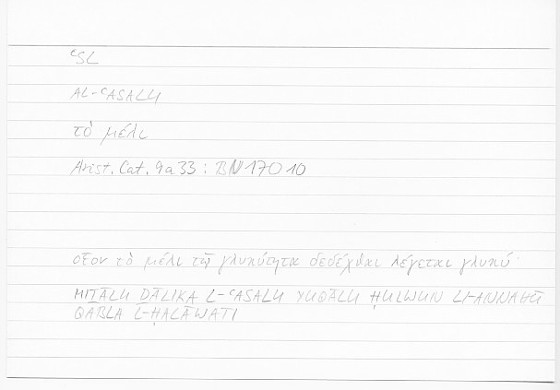 ʿSL
AL-ʿASALU
τὸ μέλι
Arist. Cat. 9a33 : BN 170 10
οἷον τὸ μέλι τῷ γλυκύτητα δεδέχθαι λέγεται γλυκύ·
MIṮĀLU ḎĀLIKA L-ʿASALU YUQĀLU ḤULWUN LI-ANNAHŪ
QABLA L-ḤALĀWATI